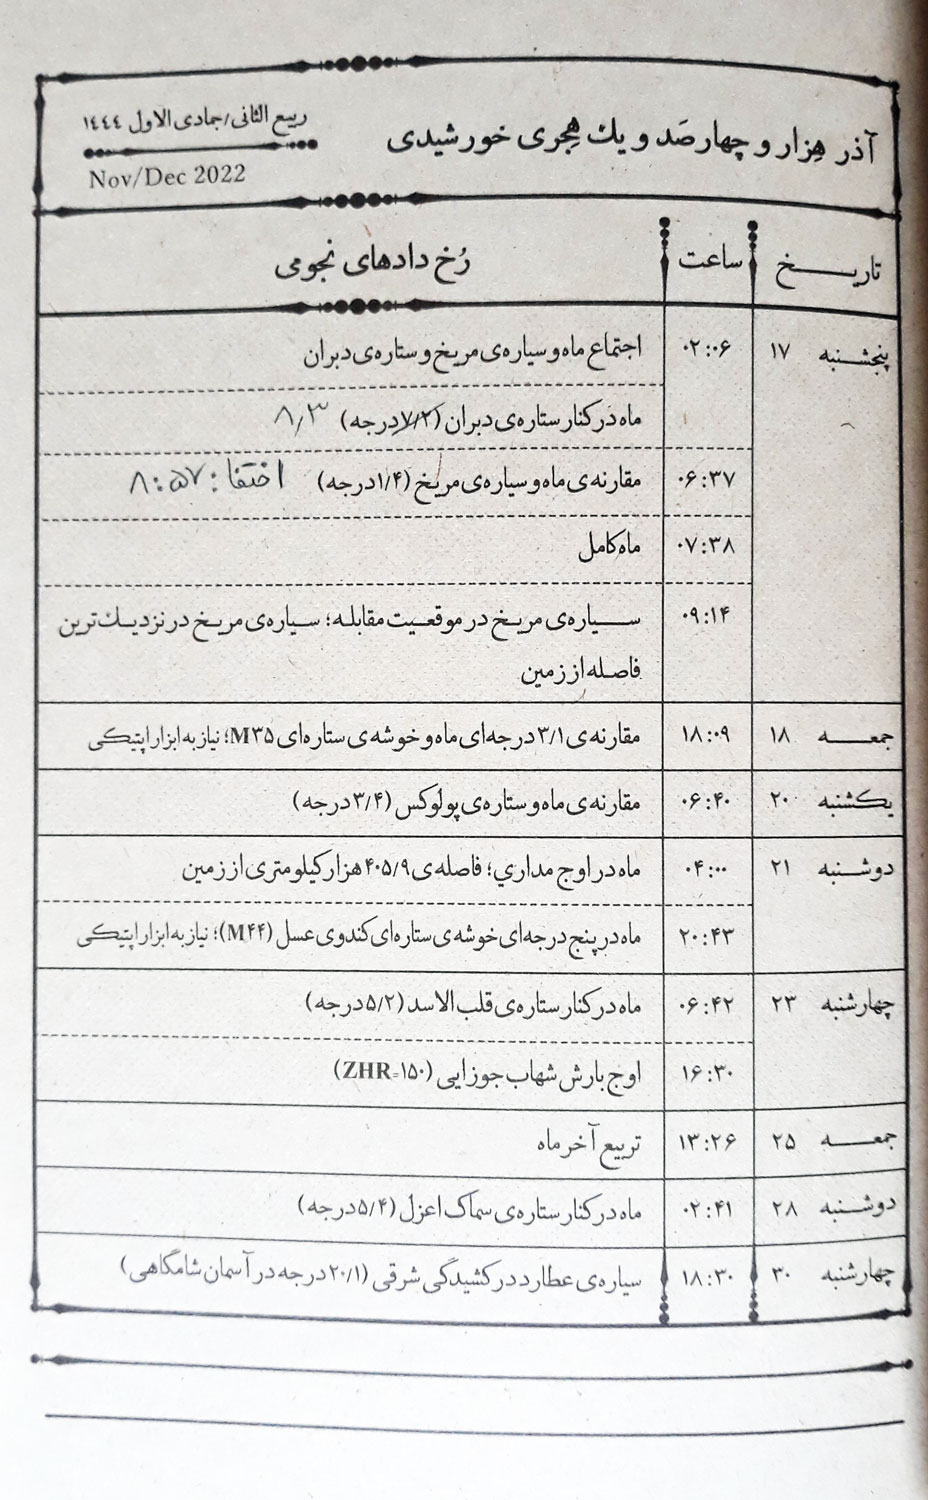 آذر هزار و چهارصَد و یك هِجری خورشیدی
ربیع الثانی/جمادی الاول ١٤٤٤
Nov/Dec 2022
تاریخ ساعت رُخ دادهای نجومی
پنجشنبه ۱۷ ۰۲:۰۶ اجتماع ماه و سیاره‌ی مریخ و ستاره‌ی دبران
ماه در کنار ستاره‌ی دبران (۷/۲درجه) ۸٫۳
۰۶:۳۷ مقارنه‌ی ماه و سیاره‌ی مریخ (۱/۴درجه) اختفا: ۸:۵۷
۰۷:۳۸ ماه کامل
۰۹:۱۴ سیاره‌ی مریخ در موقعیت مقابله؛ سیاره‌ی مریخ در نزدیك‌ترین
فاصله از زمین
جمعه ۱۸ ۱۸:۰۹ مقارنه‌ی ۳/۱ درجه‌ای ماه و خوشه‌ی ستاره‌ای M۳۵؛ نیاز به ابزار اپتیکی
یکشنبه ۲۰ ۰۶:۴۰ مقارنه‌ی ماه و ستاره‌ی پولوکس (۳/۴درجه)
دوشنبه ۲۱ ۰۴:۰۰ ماه در اوج مداري؛ فاصله‌ی ۴۰۵/۹ هزار کیلومتری از زمین
۲۰:۴۳ ماه در پنج درجه‌ای خوشه‌ی ستاره‌ای کندوی عسل (M۴۴)؛ نیاز به ابزار اپتیکی
چهارشنبه ۲۳ ۰۶:۴۲ ماه در کنار ستاره‌ی قلب الاسد (۵/۲درجه)
۱۶:۳۰ اوج بارش شهاب جوزایی (ZHR=۱۵۰)
جمعه ۲۵ ۱۳:۲۶ تربیع آخر ماه
دوشنبه ۲۸ ۰۲:۴۱ ماه در کنار ستاره‌ی سماک اعزل (۵/۴درجه)
چهارشنبه ۳۰ ۱۸:۳۰ سیاره‌ی عطارد در کشیدگی شرقی (۲۰/۱درجه در آسمان شامگاهی)